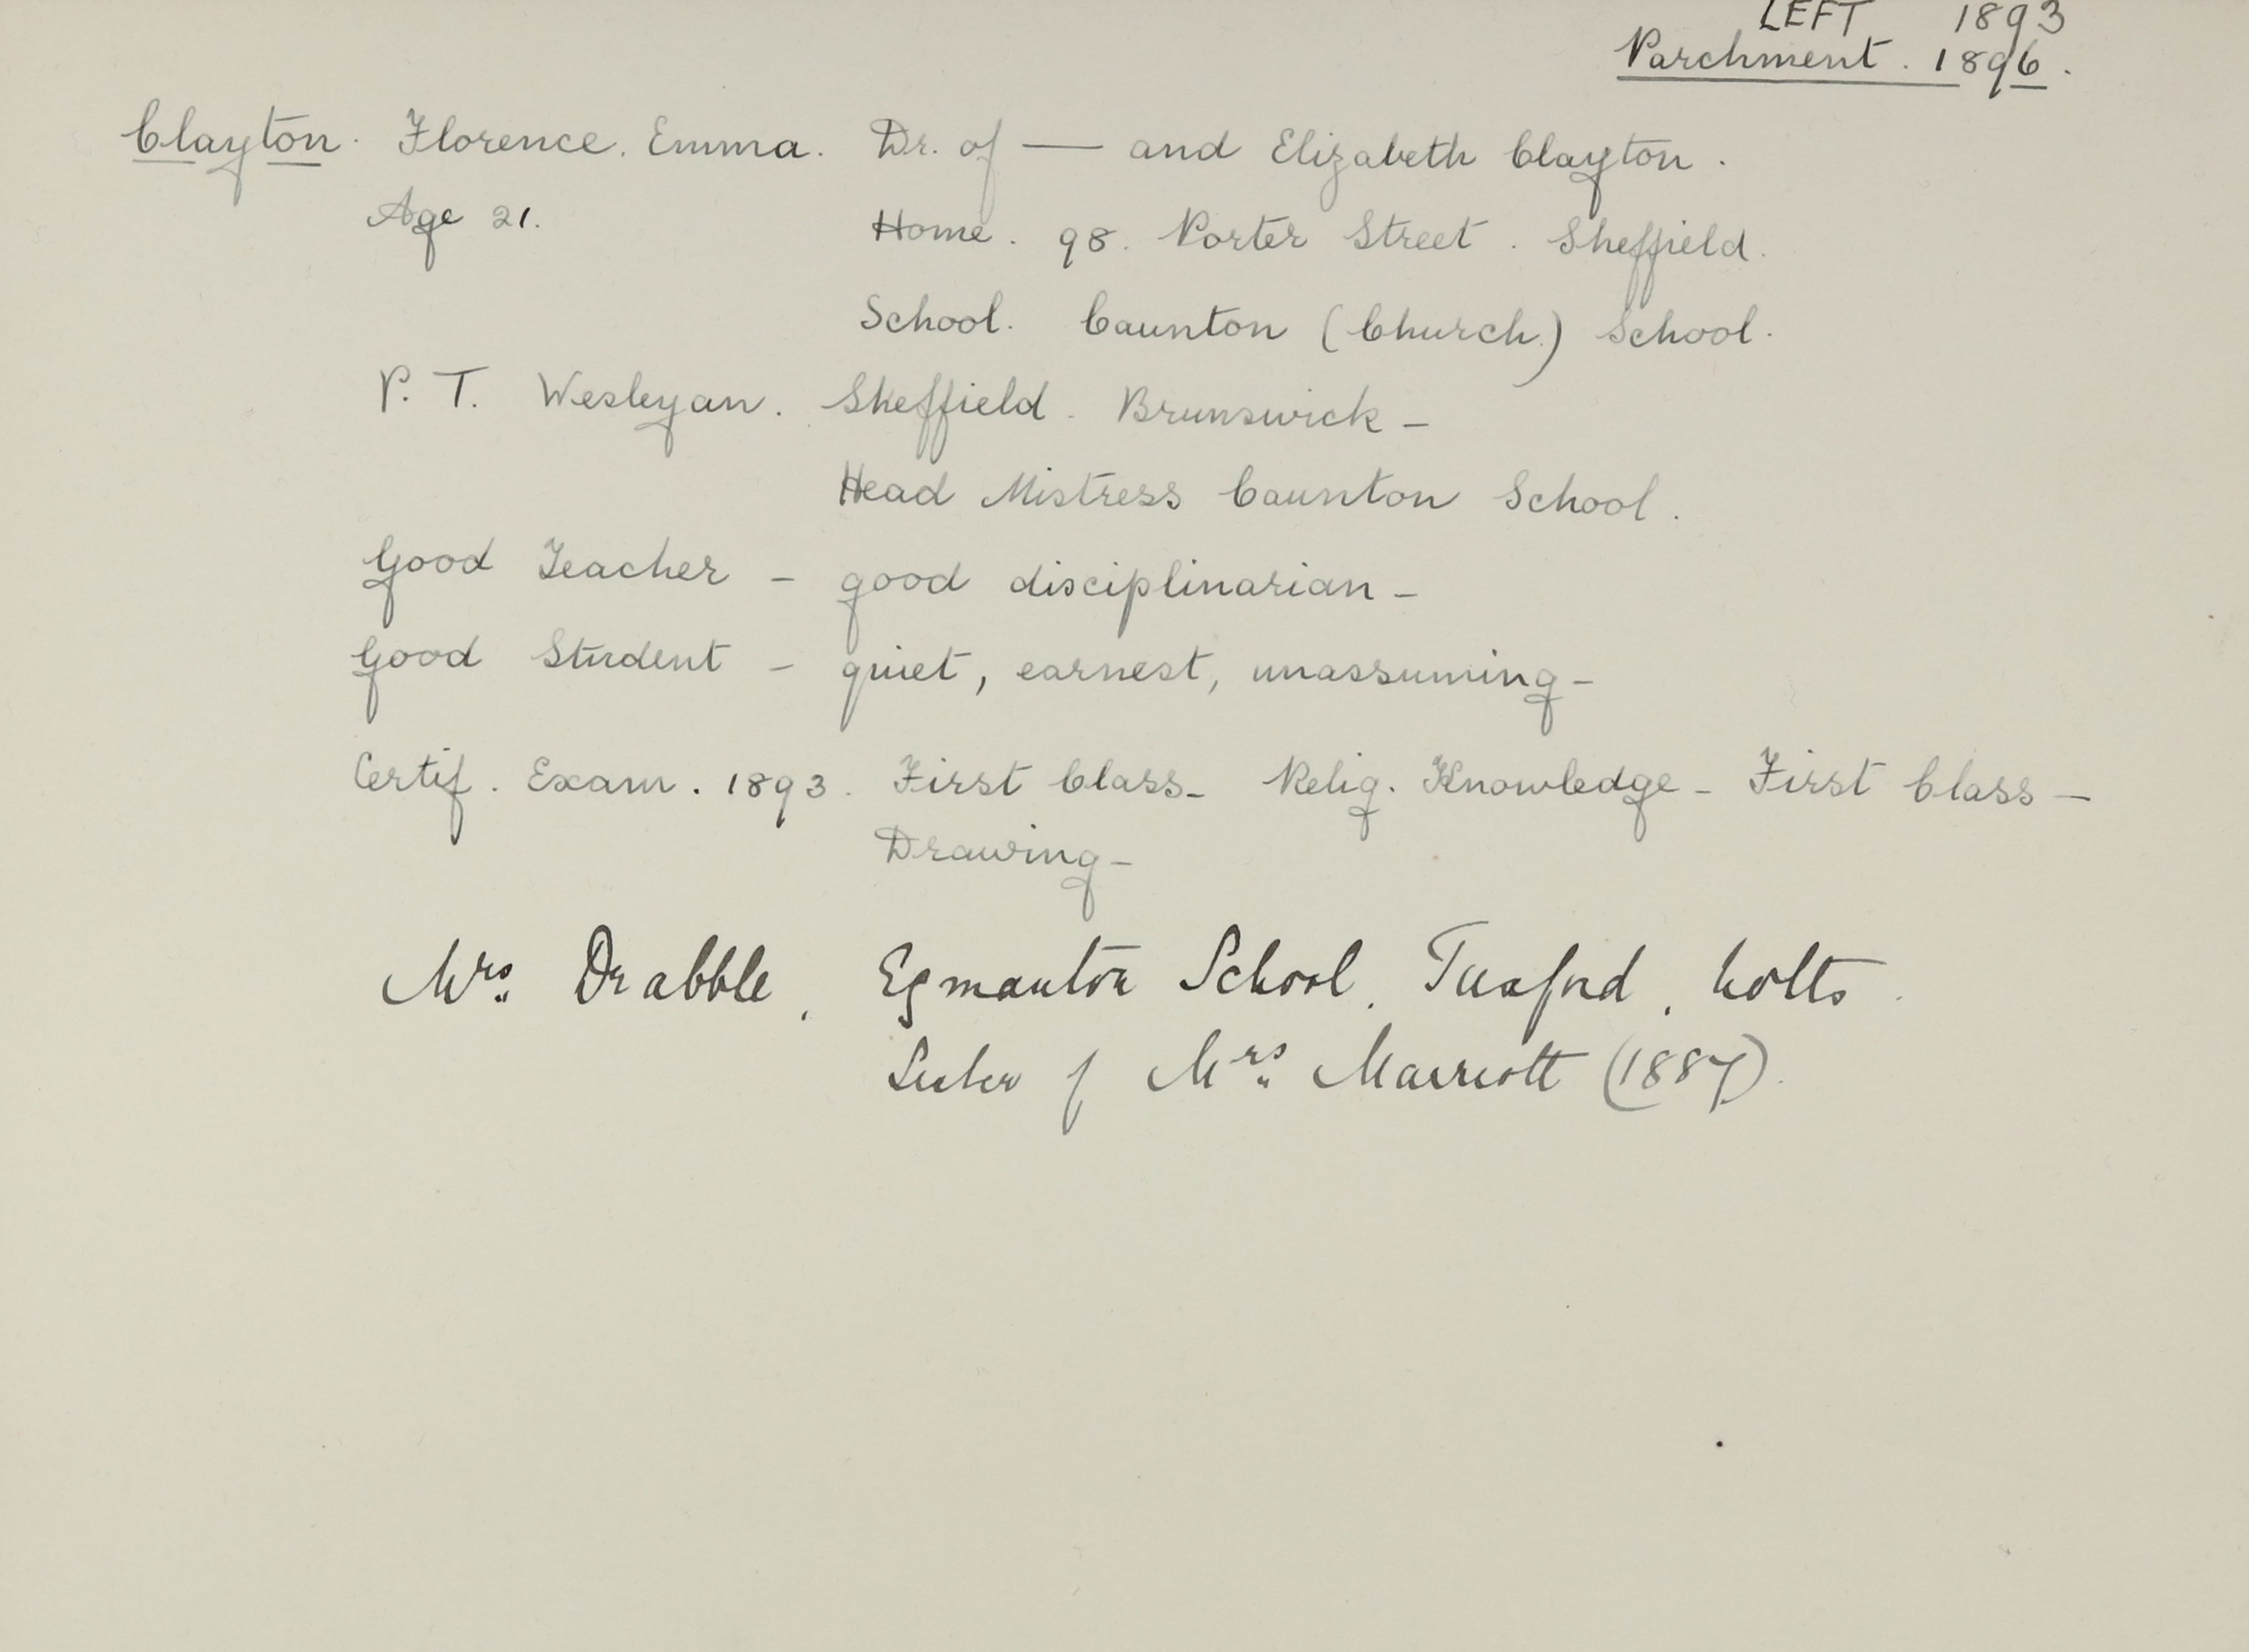 LEFT 1893
Parchment . 1896 .
Clayton . Florence . Emma . Dr. of — and Elizabeth Clayton .
Age 21. Home . 98 . Porter Street . Sheffield .
School . Caunton ( Church . ) School .
P. T. Wesleyan . Sheffield . Brunswick -
Head Mistress Caunton School .
Good Teacher - good disciplinarian -
Good Student - quiet , earnest , unassuming -
Certif . Exam . 1893 . First Class - Relig . Knowledge - First Class -
Drawing -
Mrs. Drabble , Egmanton School , Tuxford , Notts .
Sister of Mrs. Marriott (1887) .